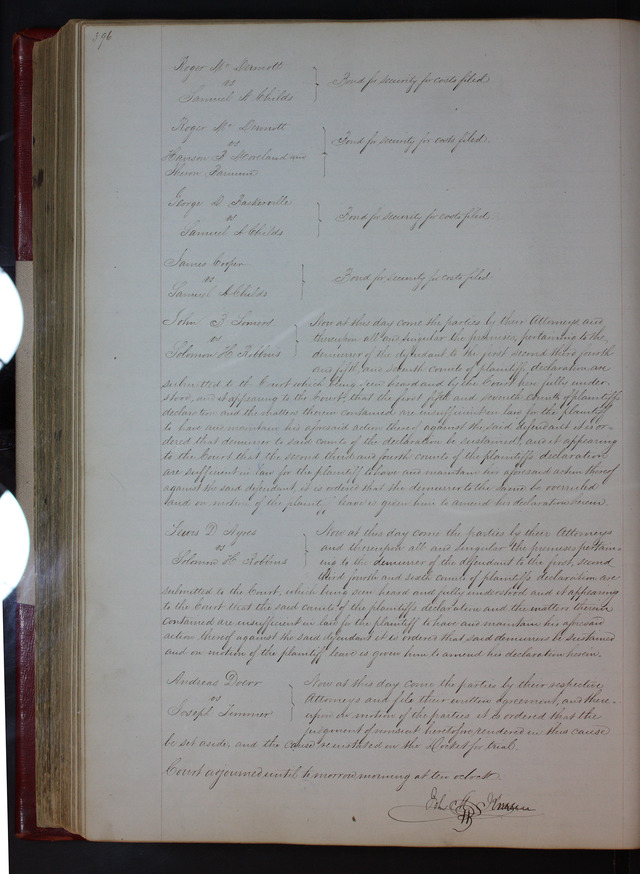 396
Roger Mc Dermott
vs
Samuel A Childs
Bond for security for costs filed
Roger Mc Dermott
vs
Hanson F Moreland and
Bond for security for costs filed.
George D Baskerville
vs
Samuel A Childs
Bond for security for costs filed
James Cooper
vs
Samuel A Childs
Bond for security for costs filed
John F Somers
vs
Solomon H Robbins
Now at this day come the parties by their Attorneys and
thereupon all and singular the premises, pertaining to the
demurrer of the defendant to the first second third fourth
and fifth and seventh counts of plaintiffs declaration are
submitted to the Court which being seen heard and by the Court here fully under-
stood, and it appearing to the Court, that the first fifth and seventh counts of plaintiffs
declaration and the matters therein contained are insufficient in law for the plaintiff
to have and maintain his aforesaid action thereof against the said defendant it is or-
dered that demurrer to said counts of the declaration be sustained, and it appearing
to the Court that the second third and fourth counts of the plaintiffs declaration
are sufficient in law for the plaintiff to have and maintain his aforesaid action thereof
against the said defendant, it is ordered that the demurrer to the same be overruled
and on motion of the plaintiff leave is given him to amend his declaration herein.
Lewis D Ayres
vs
Solomon H Robbins
Now at this day come the parties by their Attorneys
and thereupon all and singular the premises pertain-
ing to the demurrer of the defendant to the first, second
third fourth and sixth counts of plaintiffs declaration are
submitted to the Court, which being seen heard and fully understood and it appearing
to the Court that the said counts of the plaintiffs declaration and the matters therein
contained are insufficient in law for the plaintiff to have and maintain his aforesaid
action thereof against the said defendant it is ordered that said demurrer be sustained
and on motion of the plaintiff leave is given him to amend his declaration herein.
Andreas Doerr
vs
Joseph Timmer
Now at this day come the parties by their respective
Attorneys and file their written agreement, and there-
upon on motion of the parties it is ordered that the
judgment of nonsuit heretofore rendered in this cause
be set aside, and the cause reinstated on the docket for trial.
Court adjourned until tomorrow morning at ten oclock.